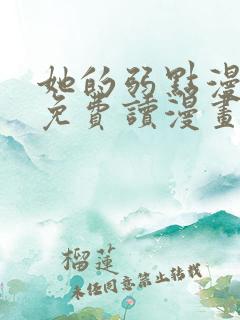 她的弱點漫
免費讀漫畫
榴蓮
未任同意禁止转载